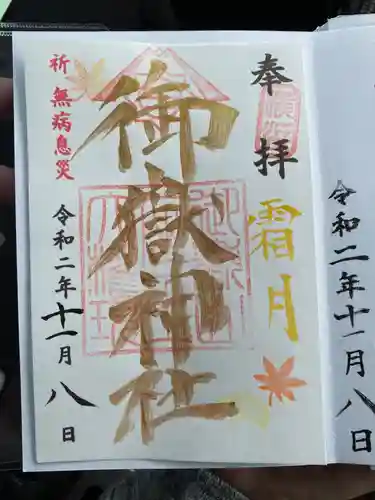 奉拝
霜月
御嶽神社
祈 無病息災
令和二年十一月八日
令和二年十一月八日